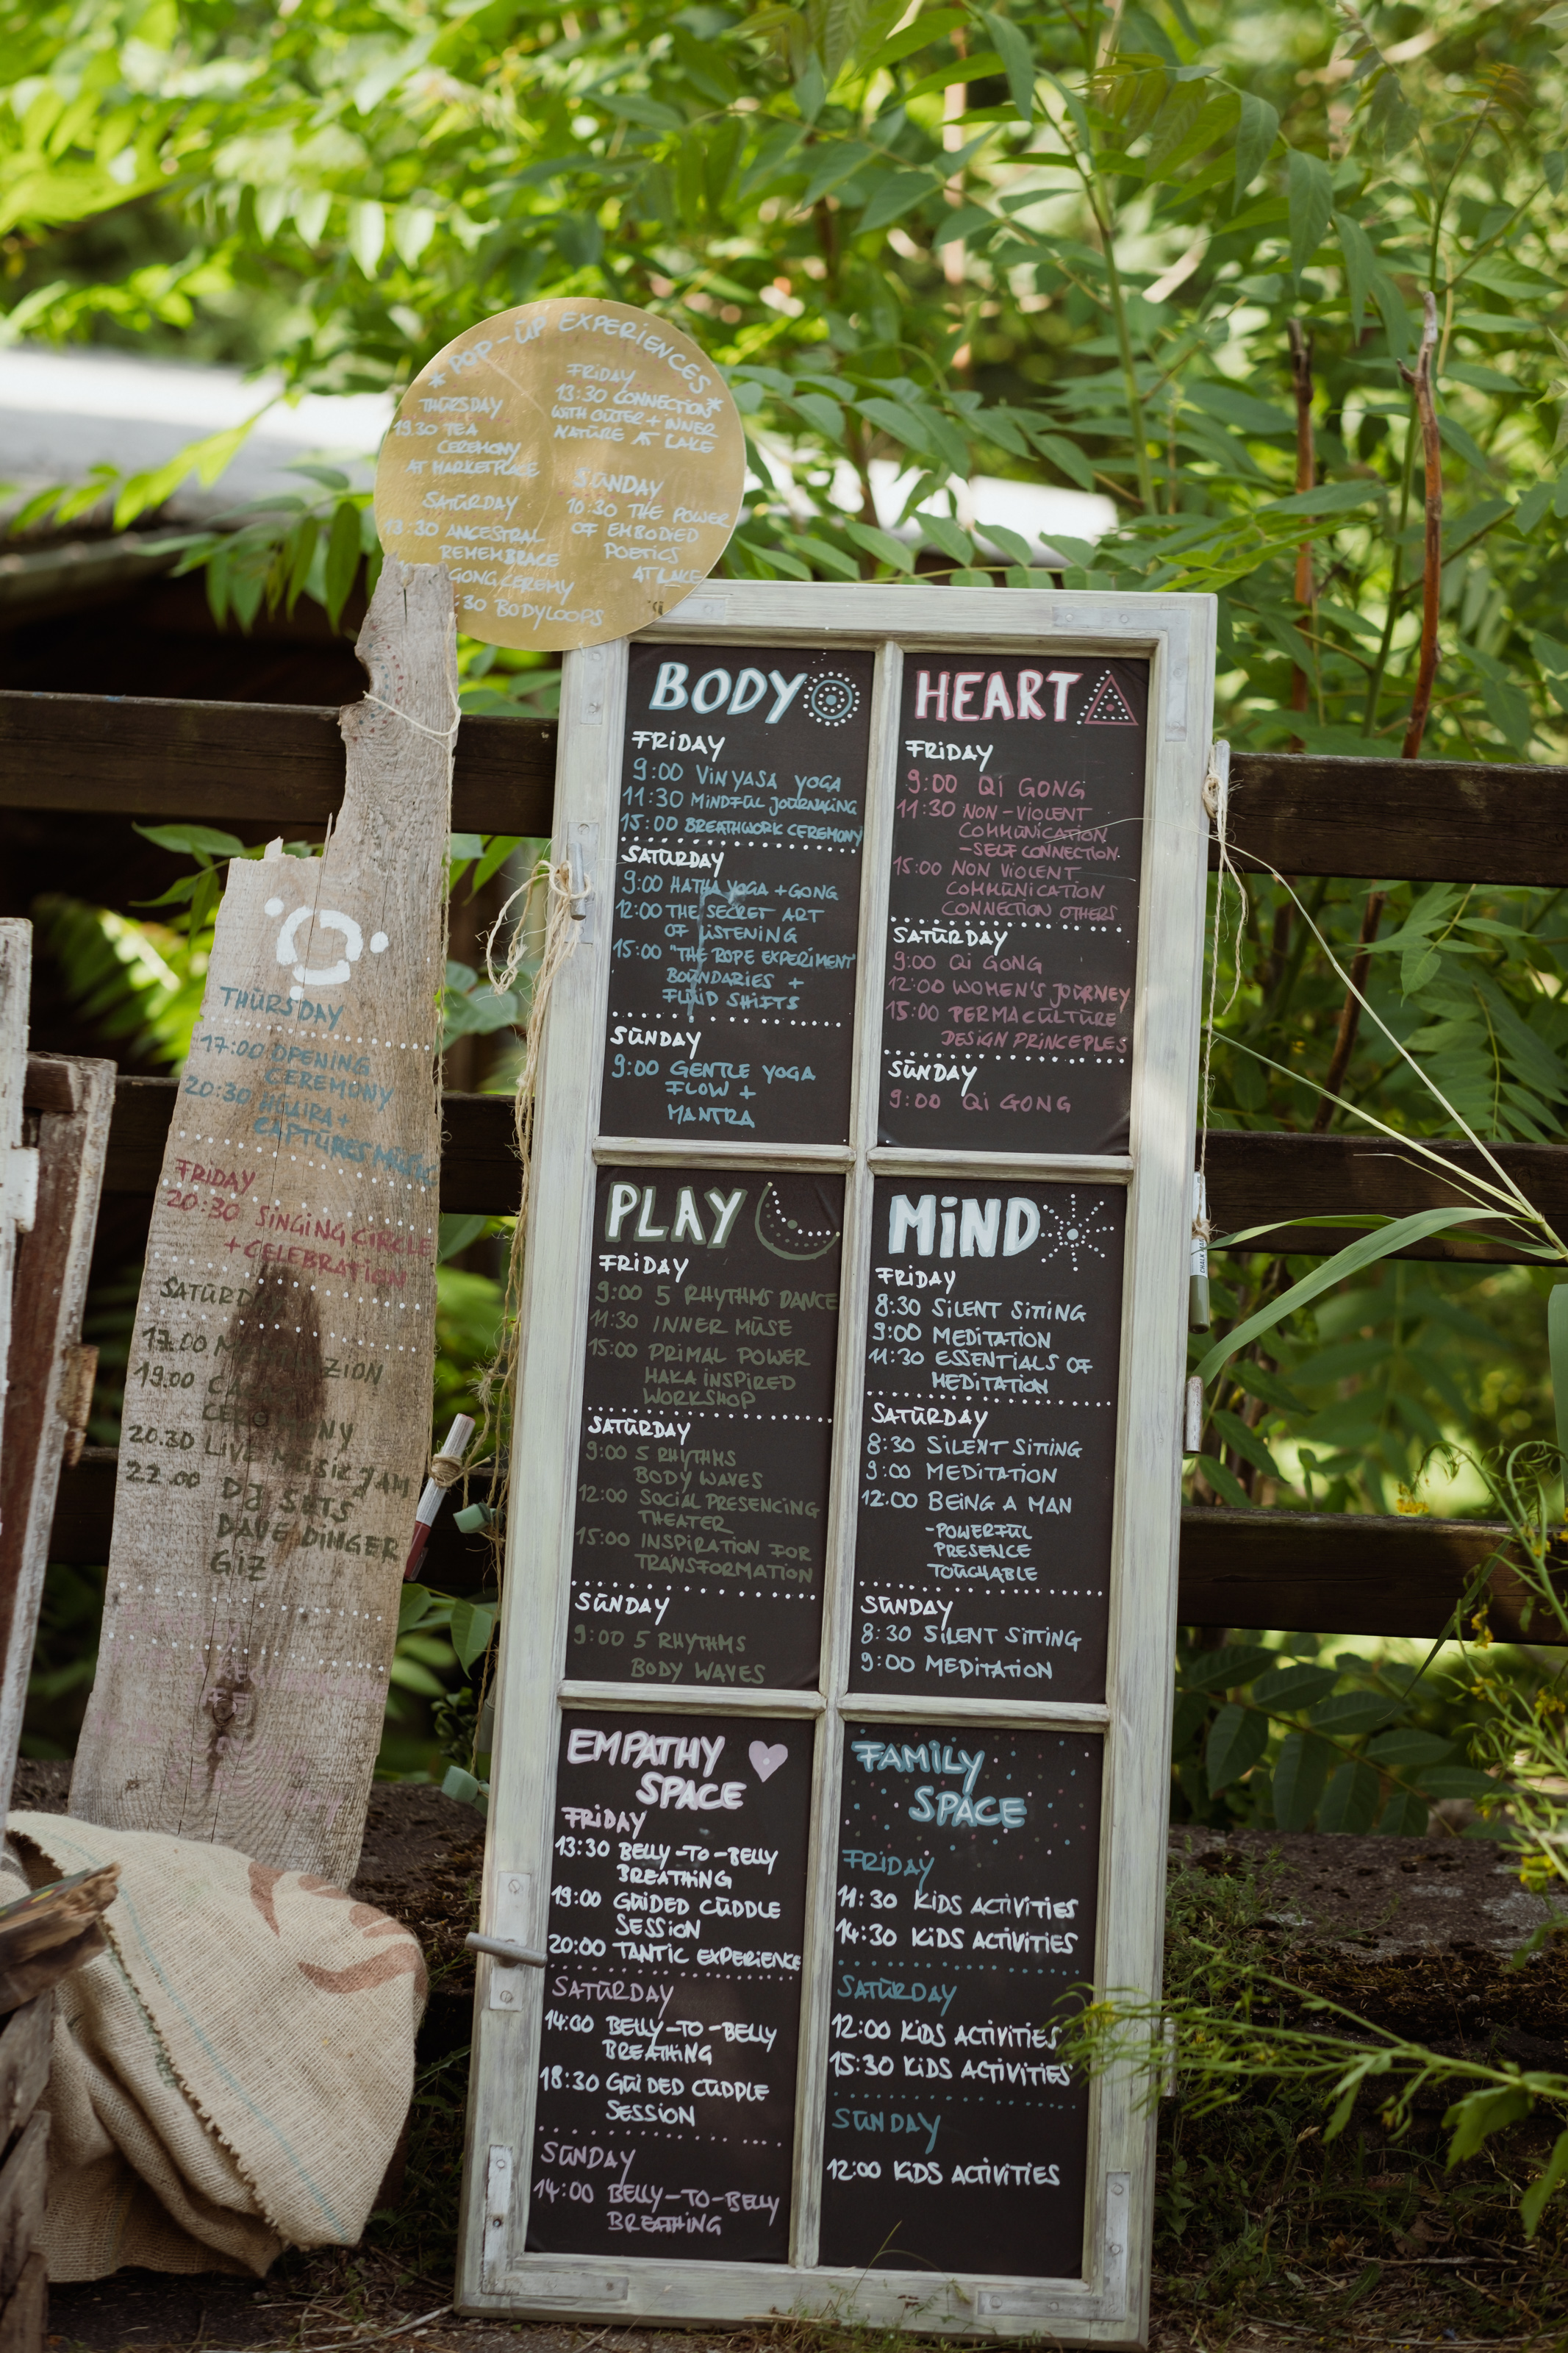 * POP-UP EXPERIENCES *
THURSDAY
19.30 TEA
CEREMONY
AT MARKETPLACE
SATURDAY
13:30 ANCESTRAL
REMEMBRACE
GONG CEREMY
:30 BODYLOOPS
FRIDAY
13:30 CONNECTION
WITH OUTER + INNER
NATURE AT LAKE
SUNDAY
10:30 THE POWER
OF EMBODIED
POETICS
AT LAKE
THURSDAY
17:00 OPENING
CEREMONY
20:30 +
CAPTURES MUSIC
FRIDAY
20:30 SINGING CIRCLE
+ CELEBRATION
SATURDAY
17.00
19.00
20.30 LIVE MUSIC JAM
22.00 DJ SETS
DAVE DINGER
GIZ
BODY
FRIDAY
9:00 VINYASA YOGA
11:30 MINDFUL JOURNALING
15:00 BREATHWORK CEREMONY
SATURDAY
9:00 HATHA YOGA + GONG
12:00 THE SECRET ART
OF LISTENING
15:00 "THE ROPE EXPERIMENT"
BOUNDARIES +
FLUID SHIFTS
SUNDAY
9:00 GENTLE YOGA
FLOW +
MANTRA
HEART
FRIDAY
9:00 QI GONG
11:30 NON-VIOLENT
COMMUNICATION
-SELF CONNECTION
15:00 NON VIOLENT
COMMUNICATION
CONNECTION OTHERS
SATURDAY
9:00 QI GONG
12:00 WOMEN'S JOURNEY
15:00 PERMACULTURE
DESIGN PRINCEPLES
SUNDAY
9:00 QI GONG
PLAY
FRIDAY
9:00 5 RHYTHMS DANCE
11:30 INNER MUSE
15:00 PRIMAL POWER
HAKA INSPIRED
WORKSHOP
SATURDAY
9:00 5 RHYTHMS
BODY WAVES
12:00 SOCIAL PRESENCING
THEATER
15:00 INSPIRATION FOR
TRANSFORMATION
SUNDAY
9:00 5 RHYTHMS
BODY WAVES
MIND
FRIDAY
8:30 SILENT SITTING
9:00 MEDITATION
11:30 ESSENTIALS OF
MEDITATION
SATURDAY
8:30 SILENT SITTING
9:00 MEDITATION
12:00 BEING A MAN
-POWERFUL
PRESENCE
TOUCHABLE
SUNDAY
8:30 SILENT SITTING
9:00 MEDITATION
EMPATHY
SPACE
FRIDAY
13:30 BELLY-TO-BELLY
BREATHING
19:00 GUIDED CUDDLE
SESSION
20:00 TANTIC EXPERIENCE
SATURDAY
14:00 BELLY-TO-BELLY
BREATHING
18:30 GUIDED CUDDLE
SESSION
SUNDAY
14:00 BELLY-TO-BELLY
BREATHING
FAMILY
SPACE
FRIDAY
11:30 KIDS ACTIVITIES
14:30 KIDS ACTIVITIES
SATURDAY
12:00 KIDS ACTIVITIES
15:30 KIDS ACTIVITIES
SUNDAY
12:00 KIDS ACTIVITIES